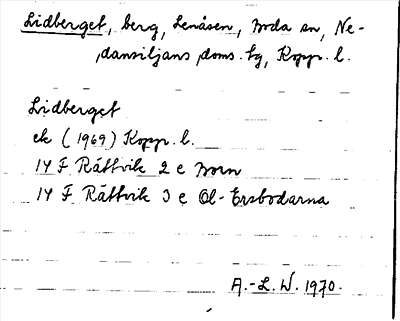 Lidberget, berg, Lenåsen, Boda sn, Ne-
dansiljans doms. tg, Kopp. l.
Lidberget
ek (1969) Kopp. l.
14 F Rättvik 2 c Born
14 F Rättvik 3 c Ol-Ersbodarna
A.-L. W. 1970.